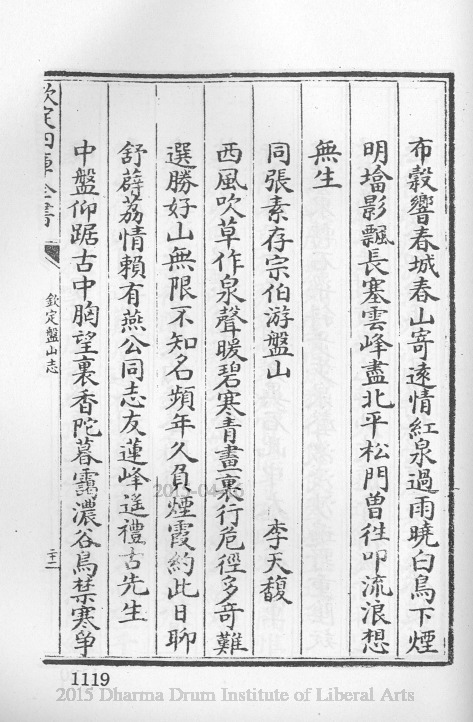 布穀響春城春山寄遠情紅泉過雨曉白鳥下煙
明墖影飄長塞雲峰盡北平松門曾徃叩流浪想
無生
同張素存宗伯游盤山　李天馥
西風吹草作泉聲暖碧寒青畫裏行危徑多奇難
選勝好山無限不知名頻年久負煙霞約此日聊
舒薜荔情賴有燕公同志友蓮峰遥禮古先生
中盤仰踞古中胸望裏香陀暮靄濃谷鳥禁寒爭
欽定四庫全書
欽定盤山志
二十二
1119
2015 Dharma Drum Institute of Liberal Arts